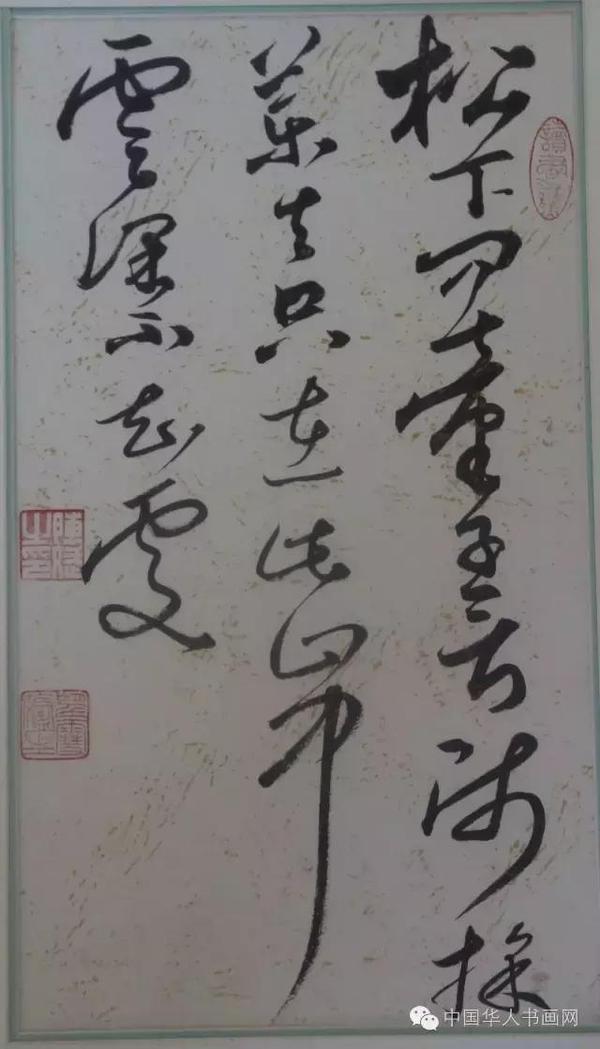 松下问童子言师採
药去只在此山中
云深不知处
中国华人书画网